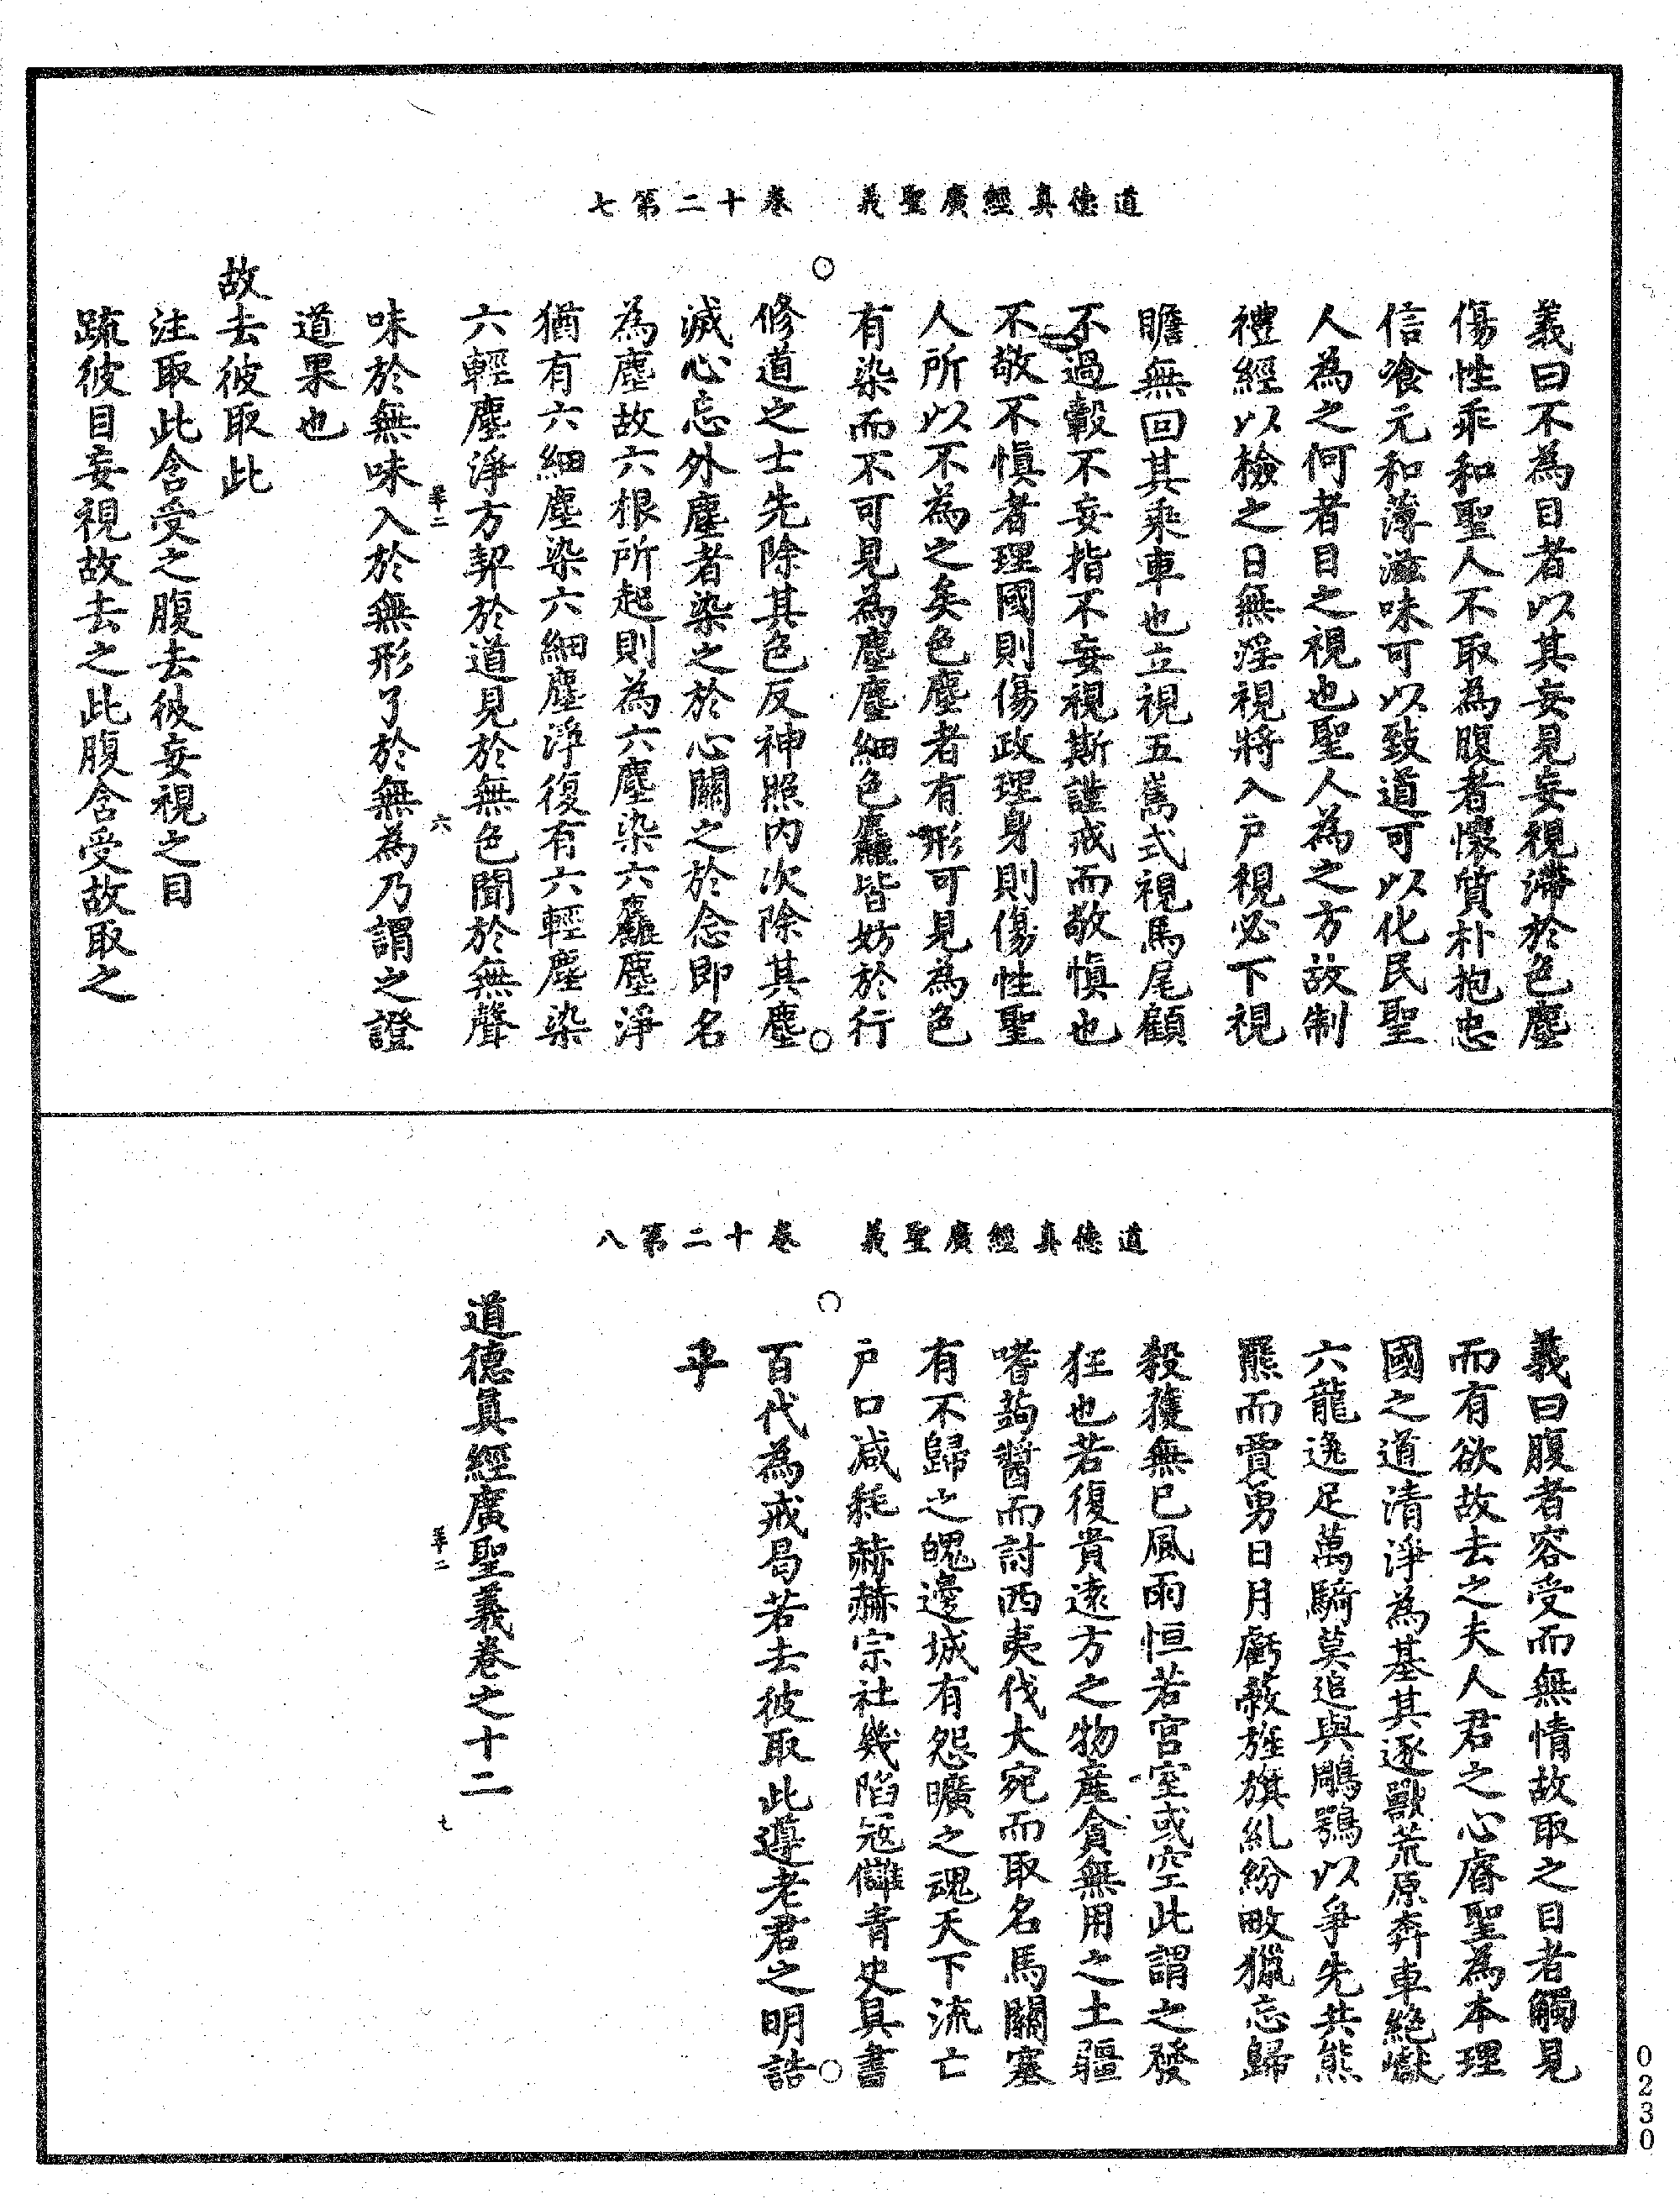 道德真經廣聖義　卷十二第七
義曰不為目者以其妄見妄視滯於色塵
傷性乖和聖人不取為腹者懷質朴抱忠
信飡元和薄滋味可以致道可以化民聖
人為之何者目之視也聖人為之方故制
禮經以檢之曰無淫視將入戶視必下視
瞻無回其乘車也立視五嶲式視馬尾顧
不過轂不妄指不妄視斯謹戒而敬慎也
不敬不慎者理國則傷政理身則傷性聖
人所以不為之矣色塵者有形可見為色
有染而不可見為塵塵細色麤皆妨於行
修道之士先除其色反神照內次除其塵
滅心忘外塵者染之於心關之於念即名
為塵故六根所起則為六塵染六麤塵淨
猶有六細塵染六細塵淨復有六輕塵染
六輕塵淨方契於道見於無色聞於無聲
羊二　六
味於無味入於無形了於無為乃謂之證
道果也
故去彼取此
注取此含受之腹去彼妄視之目
疏彼目妄視故去之此腹含受故取之
道德真經廣聖義　卷十二第八
義曰腹者容受而無情故取之目者觸見
而有欲故去之夫人君之心睿聖為本理
國之道清淨為基其逐獸荒原奔車絕巘
六龍逸足萬騎莫追與鵰鶚以爭先共熊
羆而賈勇日月虧蔽旌旗糺紛畋獵忘歸
殺獲無已風雨恒若宮室或空此謂之發
狂也若復貴遠方之物產貪無用之土疆
嗜蒟醬而討西夷伐大宛而取名馬關塞
有不歸之魄邊城有怨曠之魂天下流亡
戶口減耗赫赫宗社幾陷冦讎青史具書
百代為戒曷若去彼取此遵老君之明誥
乎
道德真經廣聖義卷之十二
羊二　七
0230